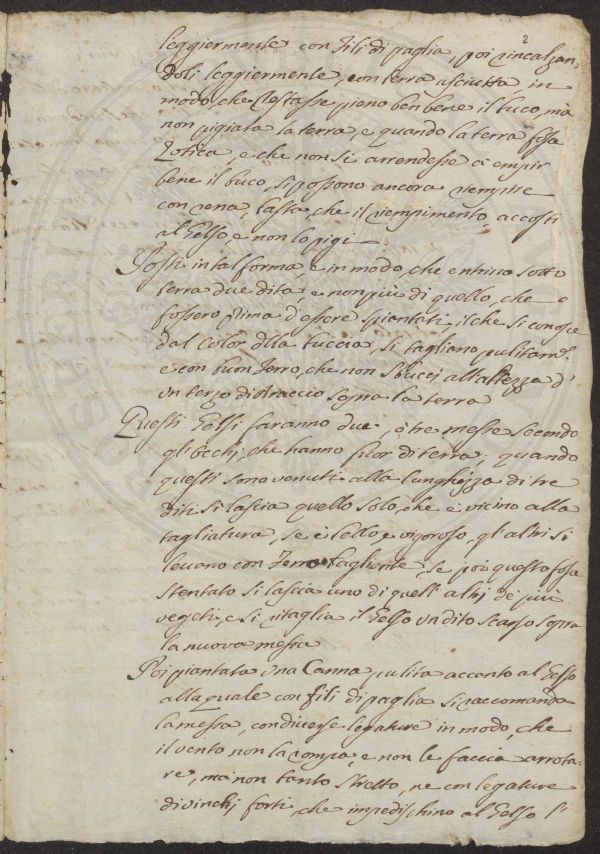 2
leggiermente con fili di paglia, poi rincalzan,
doli leggiermente, con terra asciutta, in
modo che restasse pieno ben bene il buco, mà
non pigiata la terra, e quando la terra fosse
Zotica, e che non si arrendesse à empir
bene il buco, si possono ancora riempire
con rena, basta, che il riempimento, accosti
al Gelso, e non lo pigi.
Posti in tal forma, e in modo, che entrino sotto
terra due dita, e non più di quello, che e
fossero prima d'essere spiantati, il che si conosce
dal color della buccia, si tagliano pulitam.e
e con buon ferro, che non sbucci all'altezza d'
un terzo di braccio sopra la terra
Questi Gelsi faranno due, o tre messe secondo
gl'occhi, che hanno fuor di terra; quando
questi sono venuti alla lunghezza di tre
diti si lascia quello solo, che è vicino alla
tagliatura, se è bello, e vigoroso, gl'altri si
levano con ferro tagliente, se poi questo fosse
stentato si lascia uno di quell'altri de più
vegeti, e si ritaglia il Gelso un dito scarso sopra
la nuova messa
Poi piantata una Canna pulita accanto al Gelso
alla quale con fili di paglia si raccomanda
la messa, con diverse legature in modo, che
il vento non la rompa, e non le faccia arrota-
re, mà non tanto stretto, ne con legature
di vinchi forti, che impedischino al Gelso l'